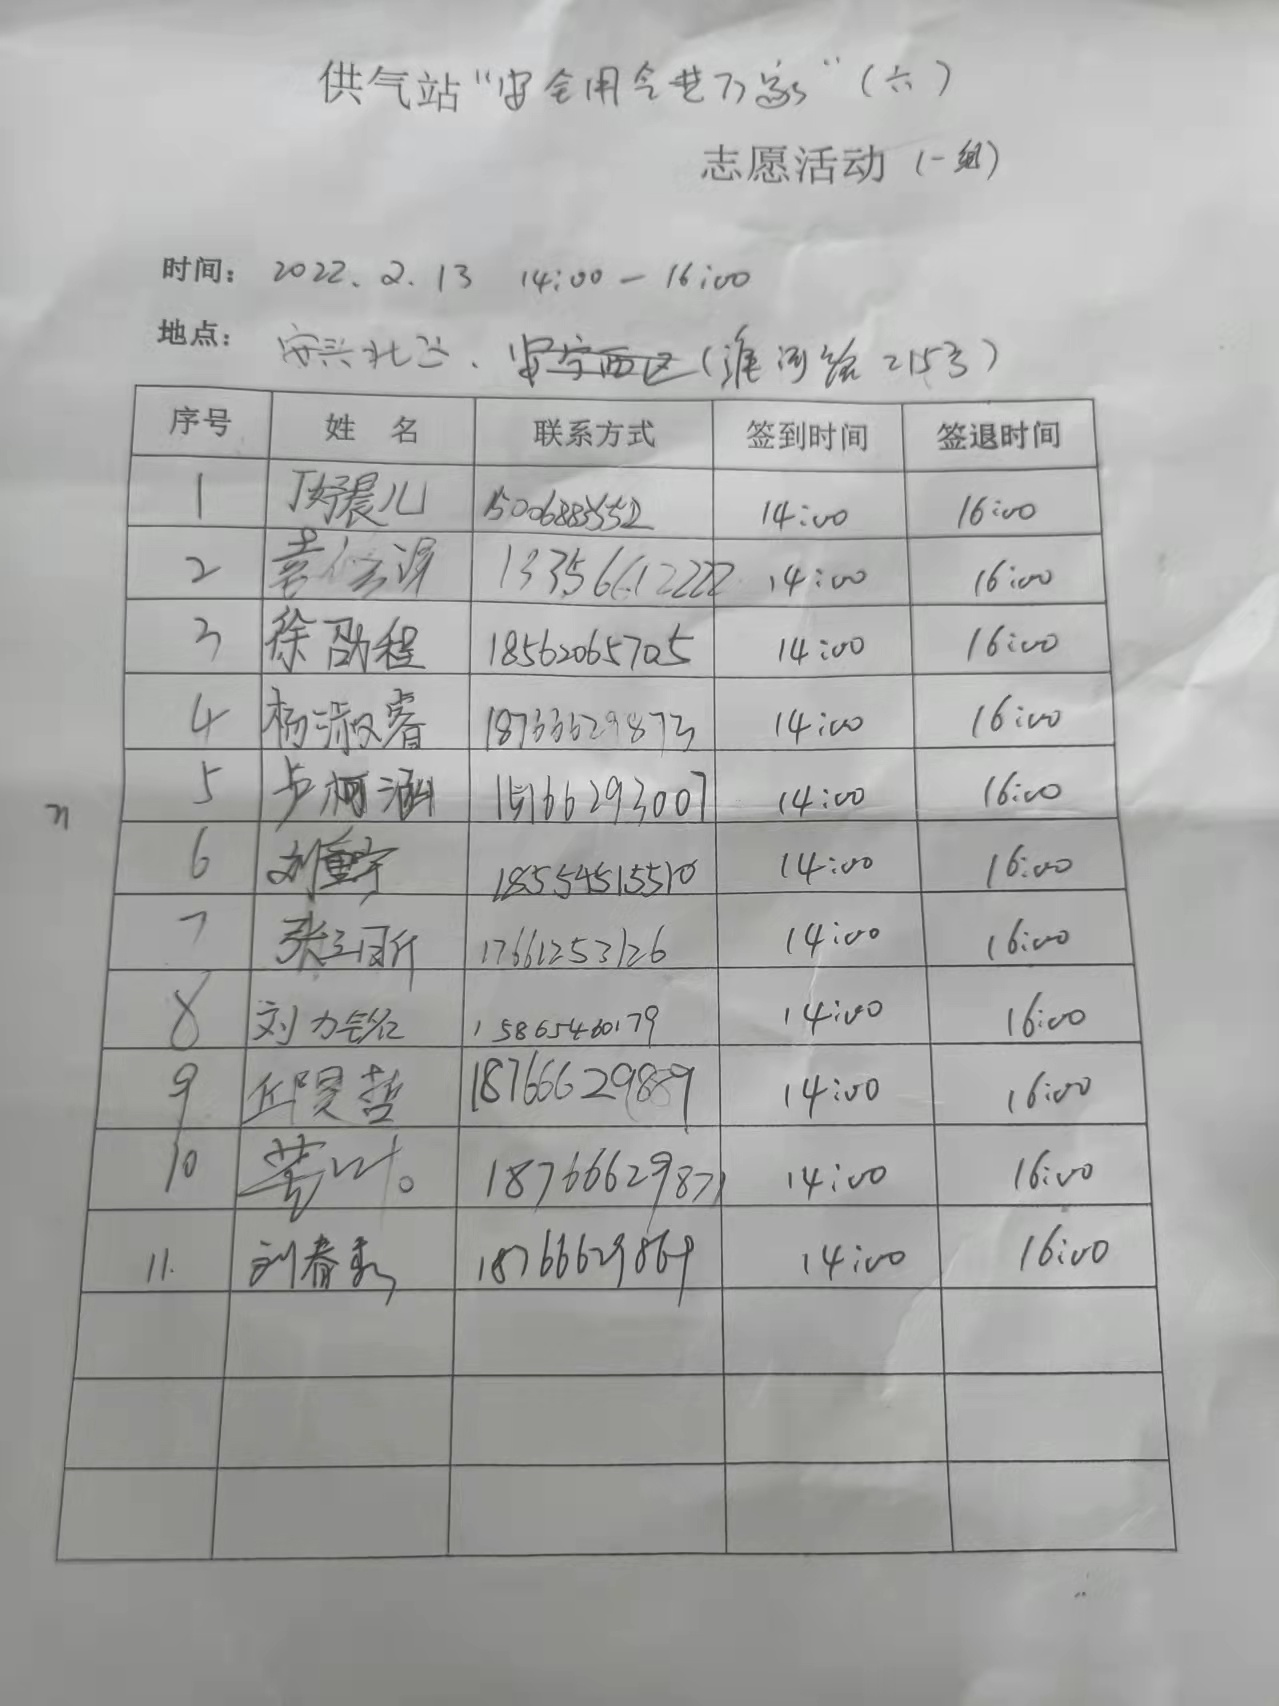 供气站“安全用气进万家”（六）
志愿活动（一组）
时间： 2022.2.13 14:00—16:00
地点： 安兴北区、安宁西区（淮河路215号）
序号 姓名 联系方式 签到时间 签退时间
1 丁妤晨儿 14:00 16:00
2 13356612222 14:00 16:00
3 徐劭程 18562065705 14:00 16:00
4 杨淑睿 18766629873 14:00 16:00
5 卢柯涵 15166293007 14:00 16:00
6 刘重宇 18554515510 14:00 16:00
7 17661253126 14:00 16:00
8 刘力铭 15865460179 14:00 16:00
9 邱昊哲 18766629889 14:00 16:00
10 18766629871 14:00 16:00
11. 刘春 18766629869 14:00 16:00